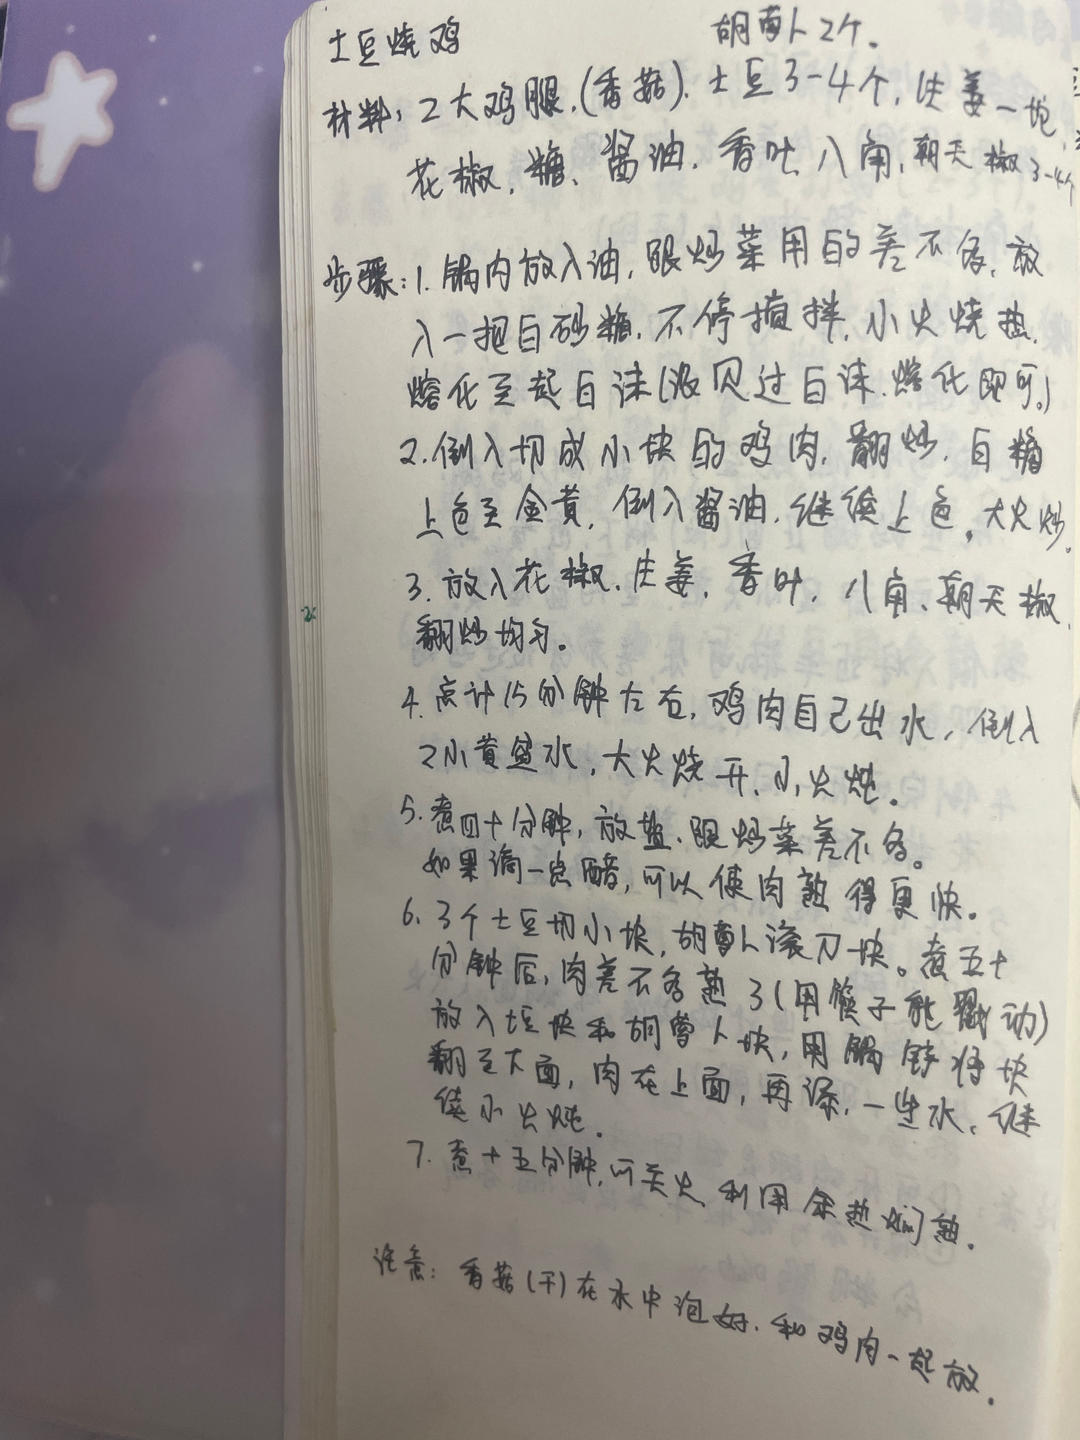 土豆烧鸡 胡萝卜2个.
材料: 2大鸡腿.(香菇). 土豆3-4个, 生姜一块,
花椒, 糖、酱油. 香叶, 八角, 朝天椒3-4个
步骤: 1. 锅内放入油, 跟炒菜用的差不多, 放
入一把白砂糖. 不停搅拌. 小火烧热.
熔化至起白沫(没见过白沫.熔化即可。)
2. 倒入切成小块的鸡肉, 翻炒, 白糖
上色至金黄, 倒入酱油, 继续上色。大火炒.
3. 放入花椒. 生姜, 香叶, 八角、朝天椒,
翻炒均匀。
4. 点计15分钟左右, 鸡肉自己出水, 倒入
2小黄盆水, 大火烧开、小火炖.
5. 煮四十分钟, 放盐. 跟炒菜差不多。
如果滴一点醋, 可以使肉熟得更快.
6. 3个土豆切小块, 胡萝卜滚刀块。煮五十
分钟后, 肉差不多熟了(用筷子能戳动)
放入土豆块和胡萝卜块, 用锅铲将块
翻至大面, 肉在上面, 再添.一些水, 继
续小火炖.
7. 煮十五分钟, 可关火 利用余热焖熟.
注意: 香菇(干)在水中泡好. 和鸡肉一起放.